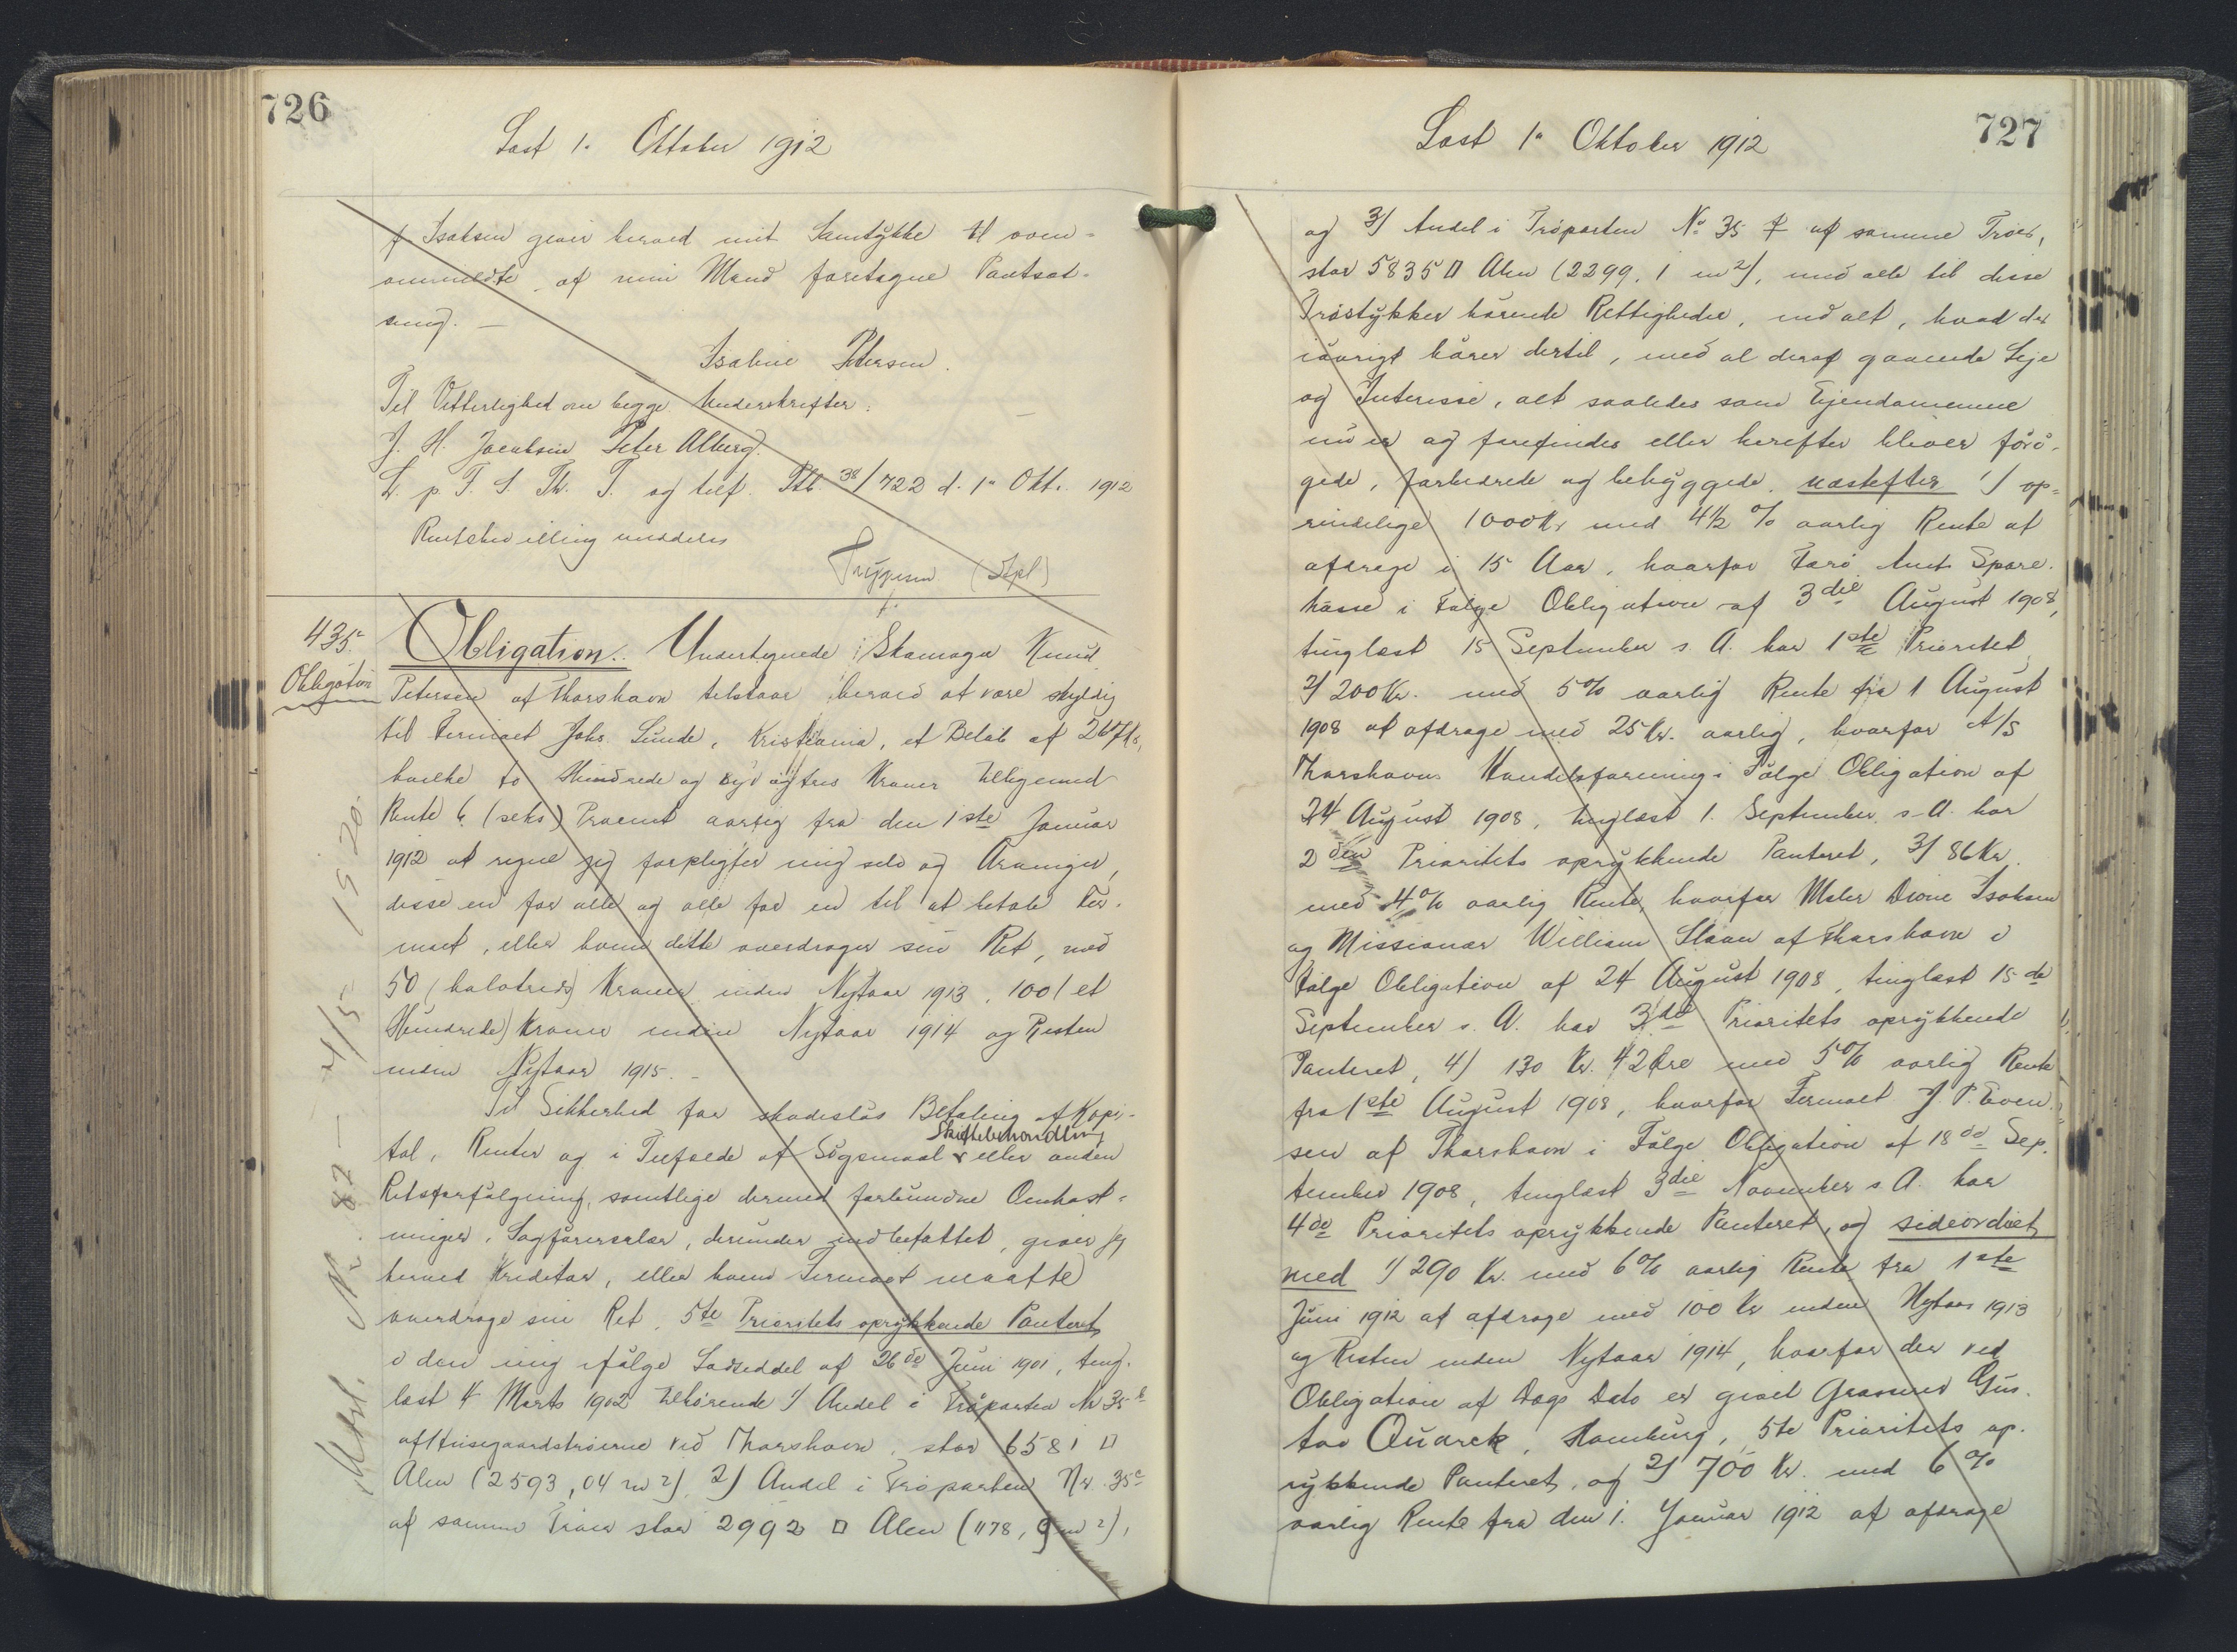 726
Læst 1. Oktober 1912
f. Isaksen giver herved mit Samtykke til oven-
ommeldte af min Mand foretagne Pantsæt-
ning. —
Isaline Petersen.
Til Vitterlighed om begge Underskrifter:
J. H. Jacobsen Peter Alberg.
L. p. F. S. Th. T. og tilf. Ptb. 38/722 d. 1" Okt. 1912
meddeles
(Kpl)
435.
Obligation
Obligation. Undertegnede Skomager Knud
Petersen af Thorshavn tilstaar herved at være skyldig
til Firmaet Johs. Lunde, Kristiania, et Beløb af 267 Kr,
hvilke to Hundrede og syv og tres Kroner tilligemed
Rente 6 (seks) Procent aarlig fra den 1ste Januar
1912 at regne jeg forpligter mig selv og Arvinger,
disse en for alle og alle for en til at betale Fir-
maet, eller hvem dette overdrager sin Ret, med
50 (halvtreds) Kroner inden Nytaar 1913, 100 (et
Hundrede) Kroner inden Nytaar 1914 og Resten
inden Nytaar 1915. —
Til Sikkerhed for skadesløs Betaling af Kapi-
Skiftebehandling
tal, Renter og i Tilfælde af Søgsmaal v eller anden
Retsforfølgning, samtlige dermed forbundne Omkost-
ninger, Sagførersalær, derunder indbefattet, giver jeg
herved Kreditor, eller hvem Firmaet maatte
overdrage sin Ret, 5te Prioritets oprykkende Panteret
i den mig ifølge Lodseddel af 26de Juni 1901, ting-
læst 4 Marts 1902 tilhørende 1/ Andel i Trøparten Nr 35 b
af Husegaardstrøerne ved Thorshavn, stor 6581 □
Alen (2593,04 m2), 2) Andel i Trøparten Nr. 35c
af samme Trøer stor 2992 □ Alen (1178,9 m2),
Udsl. Nr. 82 — 4/5 — 1920.
727
Læst 1" Oktober 1912
og 3/ Andel i Trøparten No 35 f af samme Trøer,
stor 5835 □ Alen (2299,1 m2), med alle til disse
Trøstykker hørende Rettigheder, med alt, hvad der
iøvrigt hører dertil, med al deraf gaaende Leje
og Interesse, alt saaledes som Ejendommene
nu er og forefindes eller herefter bliver forø-
gede, forbedrede og bebyggede, næstefter 1/ op-
rindelige 1000 Kr med 4 1/2 % aarlig Rente at
afdrage i 15 Aar, hvorfor Færø Amts Spare-
kasse i Følge Obligation af 3die August 1908,
tinglæst 15 September s. A. har 1ste Prioritet,
2/ 200 Kr. med 5% aarlig Rente fra 1 August
1908 at afdrage med 25 Kr. aarlig, hvorfor A/S
Thorshavns Handelsforening i Følge Obligation af
24 August 1908, tinglæst 1. September s. A. har
2den Prioritets oprykkende Panteret, 3/ 86 Kr.
med 4% aarlig Rente, hvorfor Maler Dione Isaksen
og Missionær William Sloan af Thorshavn i
Følge Obligation af 24 August 1908, tinglæst 15 de
September s. A. har 3die Prioritets oprykkende
Panteret, 4/ 130 Kr. 42 Øre med 5% aarlig Rente
fra 1ste August 1908, hvorfor Firmaet J. P. Even-
sen af Thorshavn i Følge Obligation af 18de Sep-
tember 1908, tinglæst 3die November s A. har
4de Prioritets oprykkende Panteret, og sideordnet
med 1/ 290 Kr. med 6% aarlig Rente fra 1ste
Juni 1912 at afdrage med 100 Kr inden Nytaar 1913
og Resten inden Nytaar 1914, hvorfor der ved
Obligation af Dags Dato er givet Grosserer Gus-
tav Quarck, Hamburg, 5te Prioritets op-
rykkende Panteret, og 2/ 700 Kr. med 6%
aarlig Rente fra den 1. Januar 1912 at afdrage